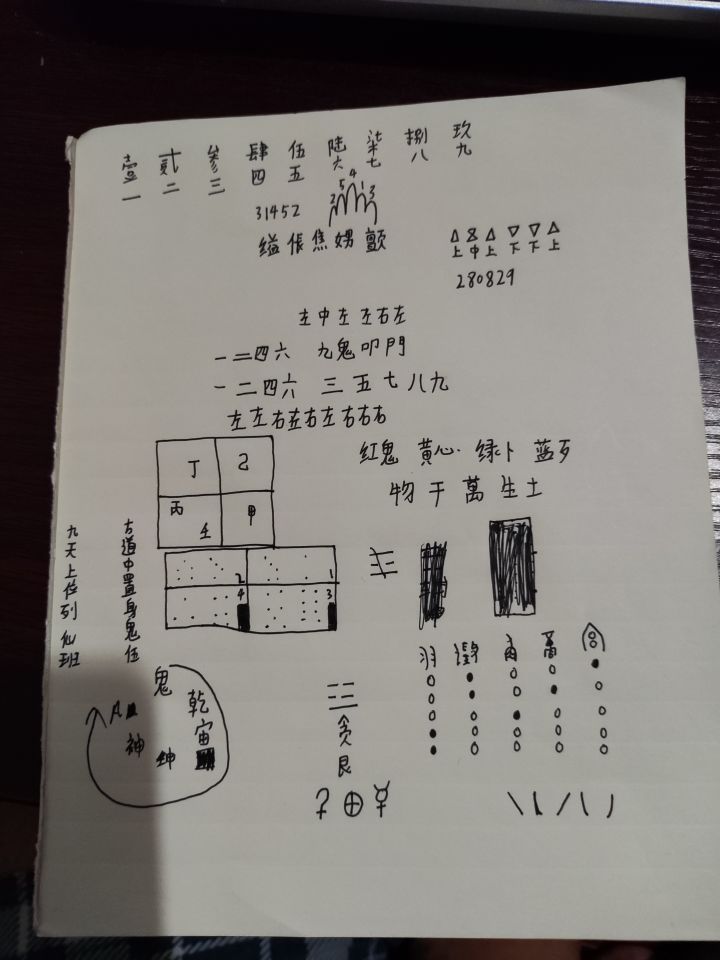 壹 贰 叁 肆 伍 陆 柒 捌 玖
一 二 三 四 五 六 七 八 九
31452
2 5 4 1 3
缢 伥 焦 娚 颤
上 中 上 下 下 上
280829
左 中 左 左 右 左
一 二 四 六 九鬼叩門
一 二 四 六 三 五 七 八 九
左 左 右 左 右 左 右 右 右
红鬼 黄心 绿卜 蓝歹
物 于 萬 生 土
丁 乙
丙 壬 甲
2 1
4 3
九天上位列仙班
古道中置身鬼伍
羽 角
鬼
乾
宙
神
坤
贪
艮